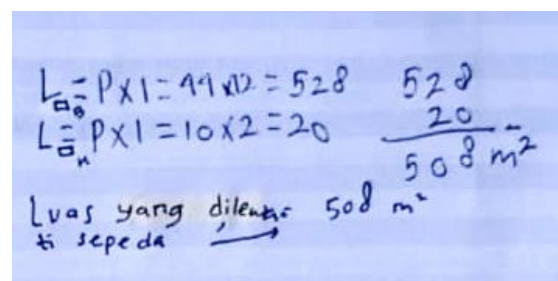 L□B = P x l = 44 x 12 = 528
L□n = P x l = 10 x 2 = 20
528
20 -
508 m²
Luas yang dilewa- 508 m²
ti sepeda →